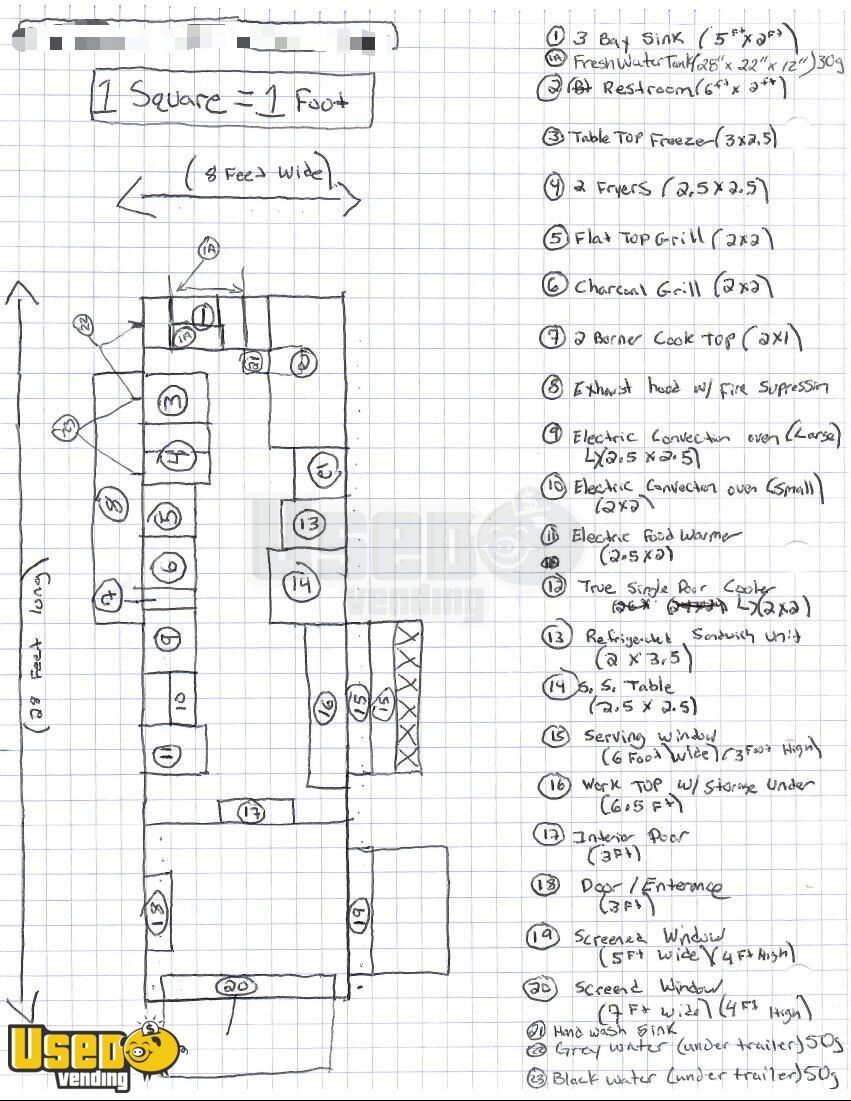 1 Square = 1 Foot
(8 Feet Wide)
(28 Feet long)
1A
1
1A
22
21
2
23
3
4
12
8
5
13
6
14
7
9
10
16
15
15
11
17
18
19
20
① 3 Bay Sink (5Ft x 2Ft)
1A Fresh Water Tank (28" x 22" x 12") 30g
② Restroom (6ft x 2ft)
③ Table Top Freeze (3x2.5)
④ 2 Fryers (2.5 x 2.5)
⑤ Flat Top Grill (2x2)
⑥ Charcoal Grill (2x2)
⑦ 2 Borner Cook Top (2x1)
⑧ Exhaust hood w/ Fire Supression
⑨ Electric Convection oven (Large)
(2.5 x 2.5)
⑩ Electric Convection oven (Small)
(2x2)
⑪ Electric Food Warmer
(2.5x2)
⑫ True Single Door Cooler
(2x2)
⑬ Refrigerated Sandwich Unit
(2 x 3.5)
⑭ S.S. Table
(2.5 x 2.5)
⑮ Serving window
(6 Foot Wide) (3 Foot High)
⑯ Work TOP w/ Storage Under
(6.5 Ft)
⑰ Interior Door
(3Ft)
⑱ Door / Enterance
(3Ft)
⑲ Screened Window
(5Ft Wide) (4Ft High)
⑳ Screend Window
(7Ft wide) (4Ft High)
㉑ Hand wash Sink
㉒ Grey water (under trailer) 50g
㉓ Black water (under trailer) 50g
Used
vending
Used
Vending